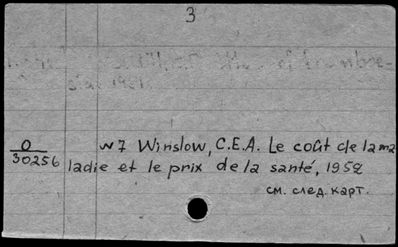 3
O
30256
N7 Winslow, C.E.A. Le coût de la ma
ladie et le prix de la santé, 1952
см. след. карт.